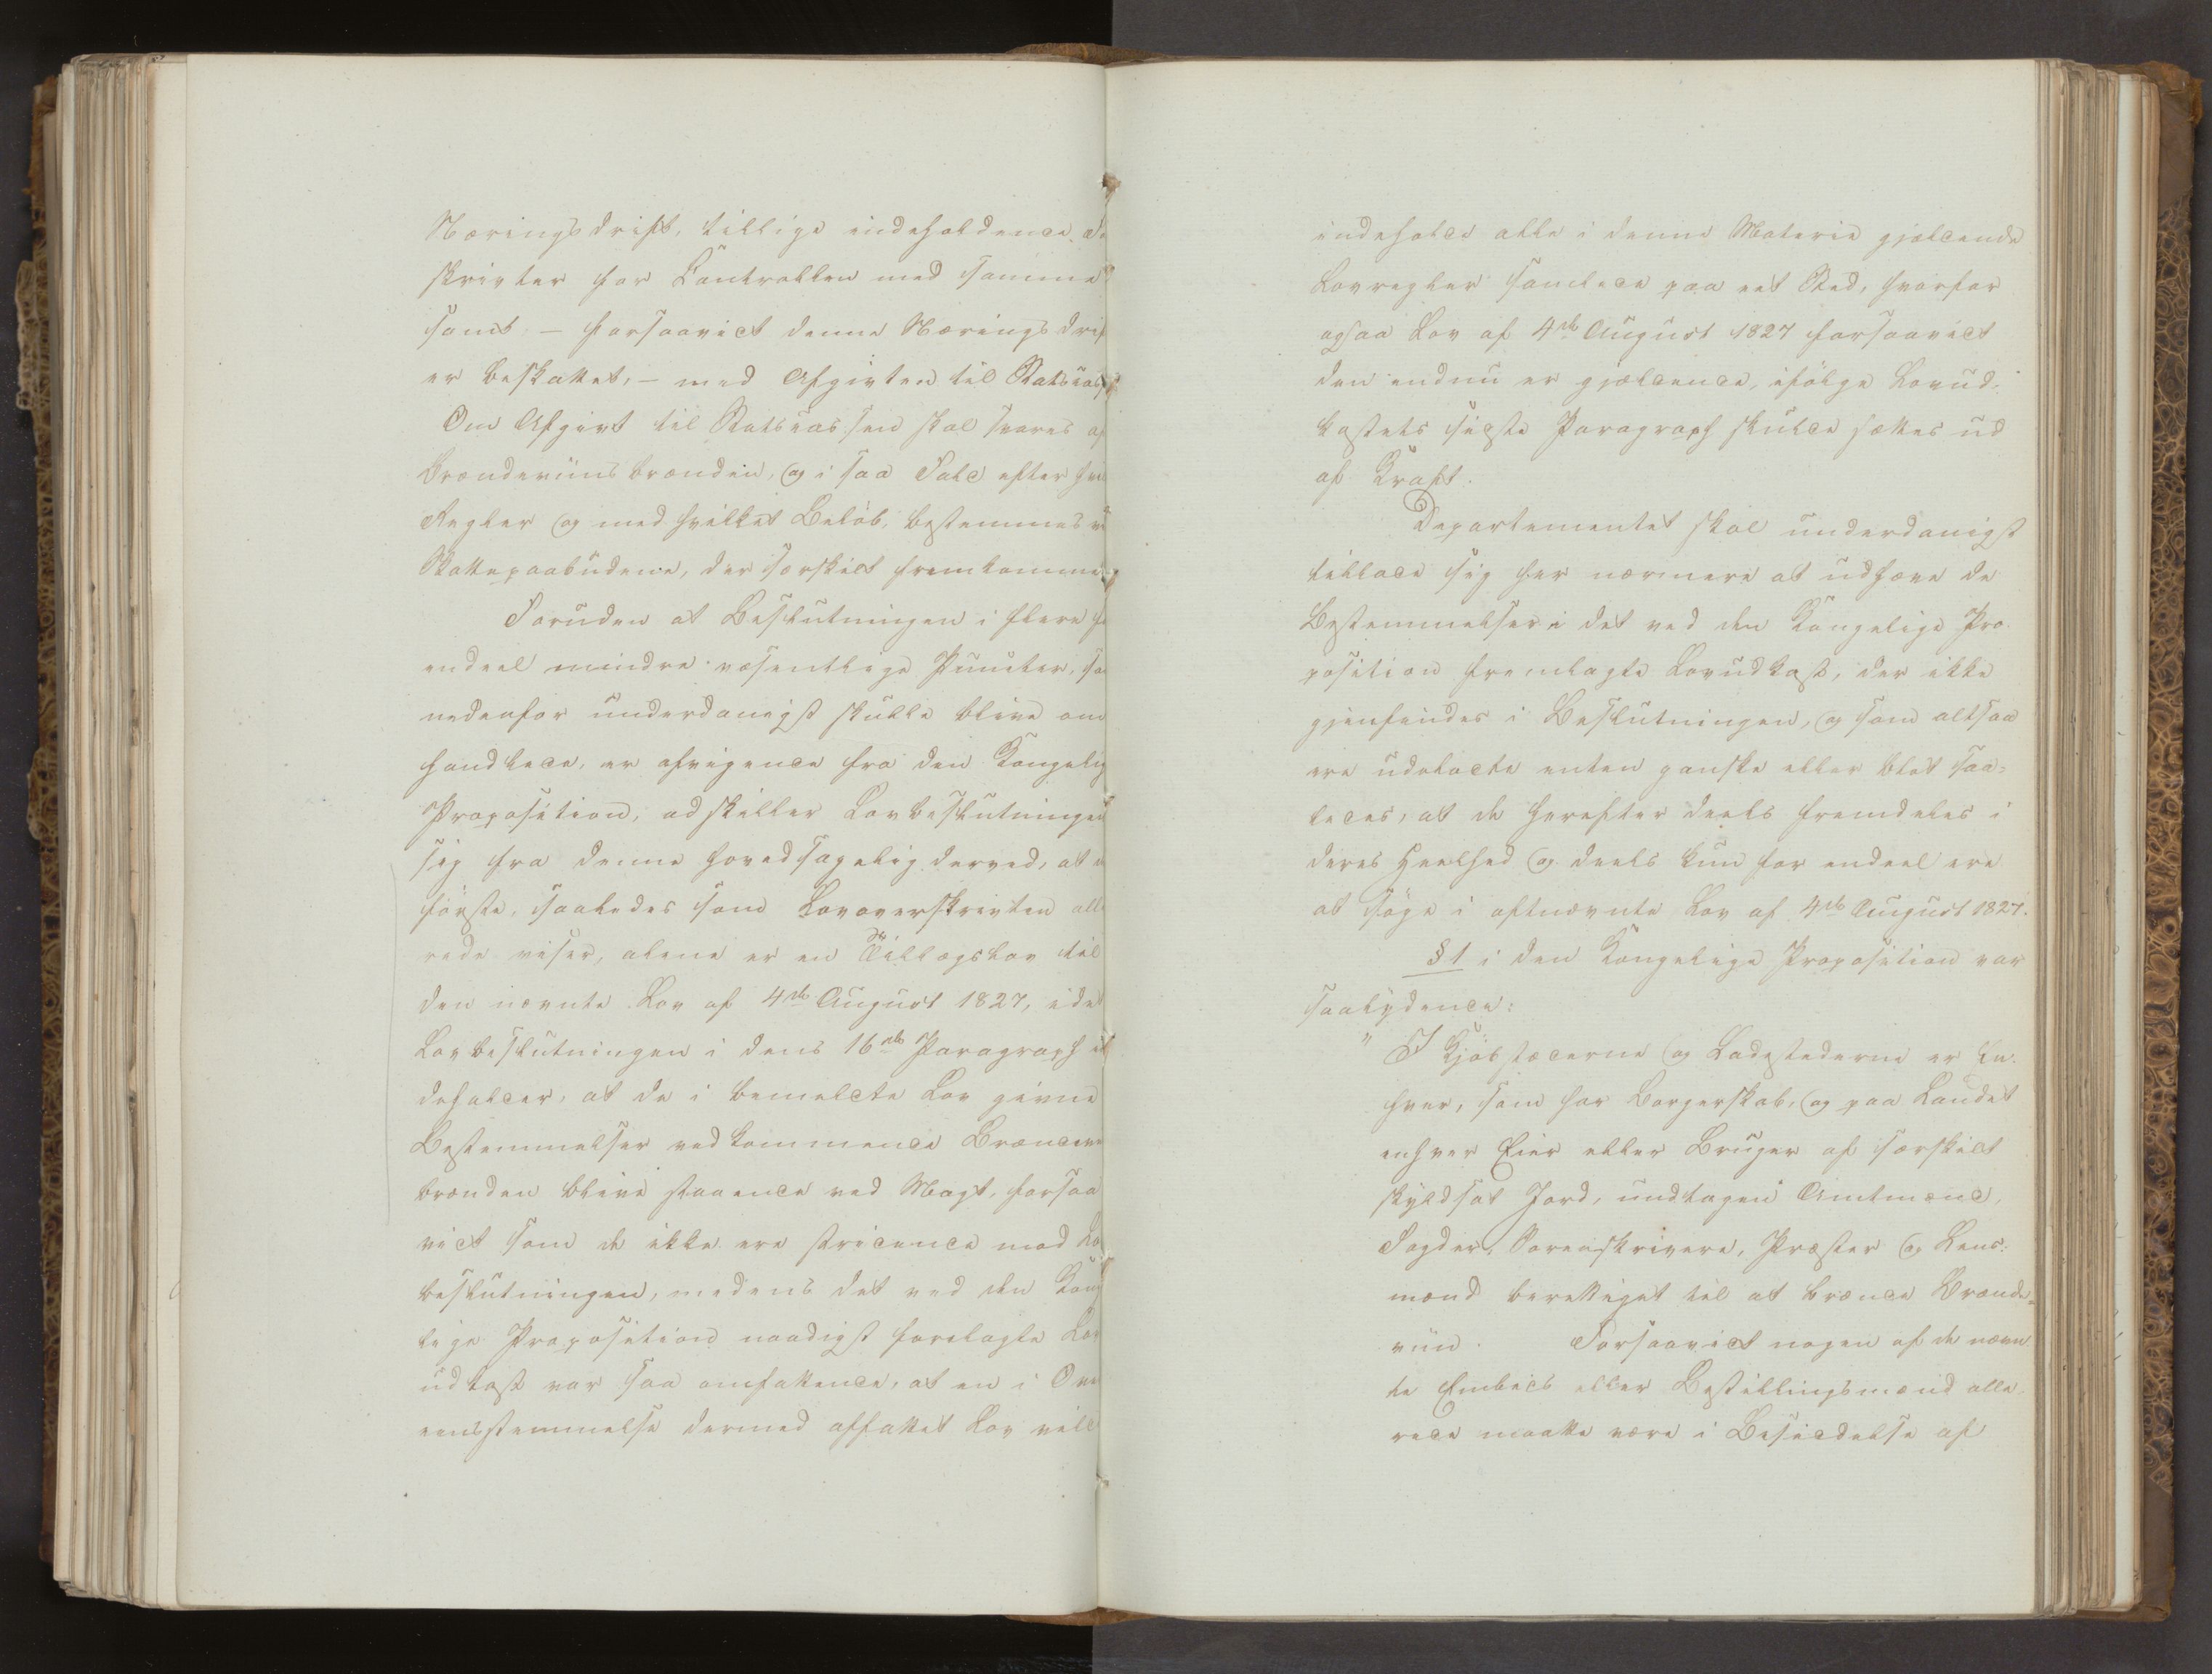 Næringsdrift, tillige indeholdende
skrivter for Controllen med samme
samt – forsaavidt denne Næringsdrif
er beskattet, – med Afgivten til Statscas
Om Afgivt til Statscassen skal svares af
Brændeviinsbrænden, og i saa Fald efter hvil
Regler og med hvilket Beløb, bestemmes v
Skattepaabudene, der særskilt fremkomme
Foruden at Beslutningen i flere
endeel mindre væsentlige Puncter, so
nedenfor underdanigst skulle blive om
handlede, er afvigende fra den Kongelig
Proposition, adskiller Lovbeslutningen
sig fra denne hovedsagelig derved, at
første, saaledes som Lovoverskrivten alle
rede viser, alene er en Tillægslov til
den nævnte Lov af 4de August 1827, idet
Lovbeslutningen i dens 16de Paragraph in
deholder, at de i bemeldte Lov givne
Bestemmelser vedkommende Brændevi
brænden blive staaende ved Magt, forsaa
vidt som de ikke ere stridende mod Lov
beslutningen, medens det ved den Konge
lige Proposition naadigst forelagte Lov
udkast var saa omfattende, at en i Over
eensstemmelse dermed affattet Lov vild
indeholde alle i denne Materie gjældende
Lovregler samlede paa eet Sted, hvorfor
ogsaa Lov af 4de August 1827 forsaavidt
den endnu er gjældende, ifølge Lovud-
kastets sidste Paragraph skulde sættes ud
af Kraft.
Departementet skal underdanigst
tillade sig her nærmere at udhæve de
Bestemmelser i det ved den Kongelige Pro-
position fremlagte Lovudkast, der ikke
gjenfindes i Beslutningen, og som altsaa
ere udeladte enten ganske eller blot saa-
ledes, at de herefter deels fremdeles i
deres Heelhed og deels kun for endeel ere
at søge i oftnævnte Lov af 4de August 1827.
§ 1 i den Kongelige Proposition var
saalydende:
" I Kjøbstæderne og Ladestederne er En-
hver, som har Borgerskab, og paa Landet
enhver Eier eller Bruger af særskilt
skyldsat Jord, undtagen Amtmænd,
Fogder, Sorenskrivere, Præster og Lens-
mænd berettiget til at brænde Brænde-
viin. Forsaavidt nogen af de nævn-
te Embeds eller Bestillingsmænd alle-
rede maatte være i Besiddelse af